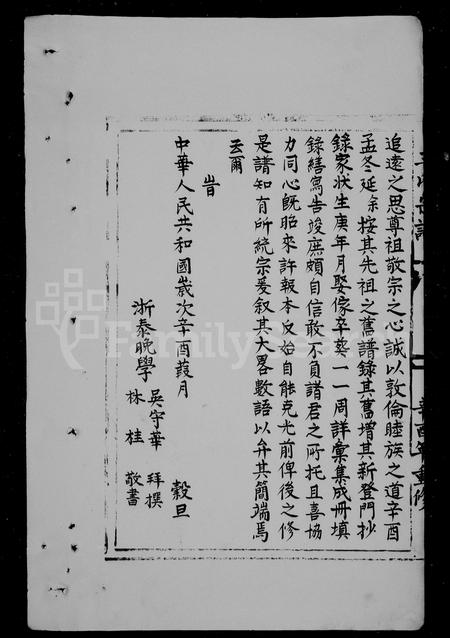 追遠之思尊祖敬宗之心誠以敦倫睦族之道辛酉
孟冬延余按其先祖之舊譜錄其舊增其新登門抄
錄家狀生庚年月娶傢卒葬一一周詳彙集成冊填
錄繕寫告竣庶頗自信敢不負諸君之所托且喜協
力同心既昭來許報本反始自能克光前俾後之修
是譜知有所統宗爰叙其大畧數語以弁其簡端焉
云爾
旹
中華人民共和國嵗次辛酉葭月 榖旦
浙泰晚學 吳守華 拜撰
林桂 敬書
辛酉年重修
FamilySearch